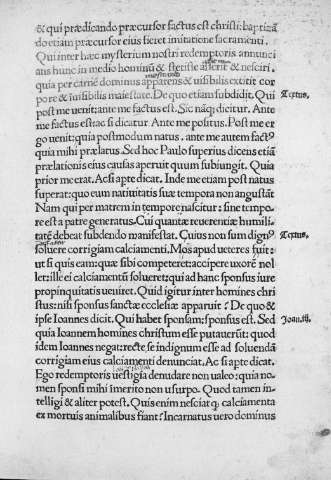 & qui prædicando præcursor factus est christi: baptizã
do etiam præcursor eius fieret imitatione sacramenti.
Qui inter hæc mysterium nostri redemptoris annunci
ans hunc in medio hominũ & stetisse asserit & nesciri.
quia per carnẽ dominus apparens & uisibilis extitit cor
pore & inuisibilis maiestate. De quo etiam subdidit. Qui
Textus
post me uenit: ante me factus est. Sic nãq; dicitur. Ante
me factus est: ac si dicatur. Ante me positus. Post me er
go uenit: quia postmodum natus. ante me autem fact⁹
quia mihi prælatus. Sed hoc Paulo superius dicens etiã
prælationis eius causas aperuit quum subiungit. Quia
prior me erat. Ac si apte dicat. Inde me etiam post natus
superat: quo eum natiuitatis suæ tempora non angustãt
Nam qui per matrem in tempore nascitur: sine tempo
re est a patre generatus. Cui quantæ reuerentiæ humili
tatẽ debeat subdendo manifestat. Cuius non sum dign⁹
Textus.
soluere corrigiam calciamenti. Mos apud ueteres fuit:
ut si quis eam: quæ sibi competeret: accipere uxorẽ nol
let: ille ei calciamentũ solueret: qui ad hanc sponsus iure
propinquitatis ueniret. Quid igitur inter homines chri
stus: nisi sponsus sanctæ ecclesiæ apparuit? De quo &
ipse Ioannes dicit. Qui habet sponsam: sponsus est. Sed
Ioan.iii.
quia Ioannem homines christum esse putauerũt: quod
idem Ioannes negat: recte se indignum esse ad soluendã
corrigiam eius calciamenti denunciat. Ac si apte dicat.
Ego redemptoris uestigia denudare non ualeo: quia no
men sponsi mihi imerito non usurpo. Quod tamen in
telligi & aliter potest. Quis enim nesciat q; calciamenta
ex mortuis animalibus fiant? Incarnatus uero dominus